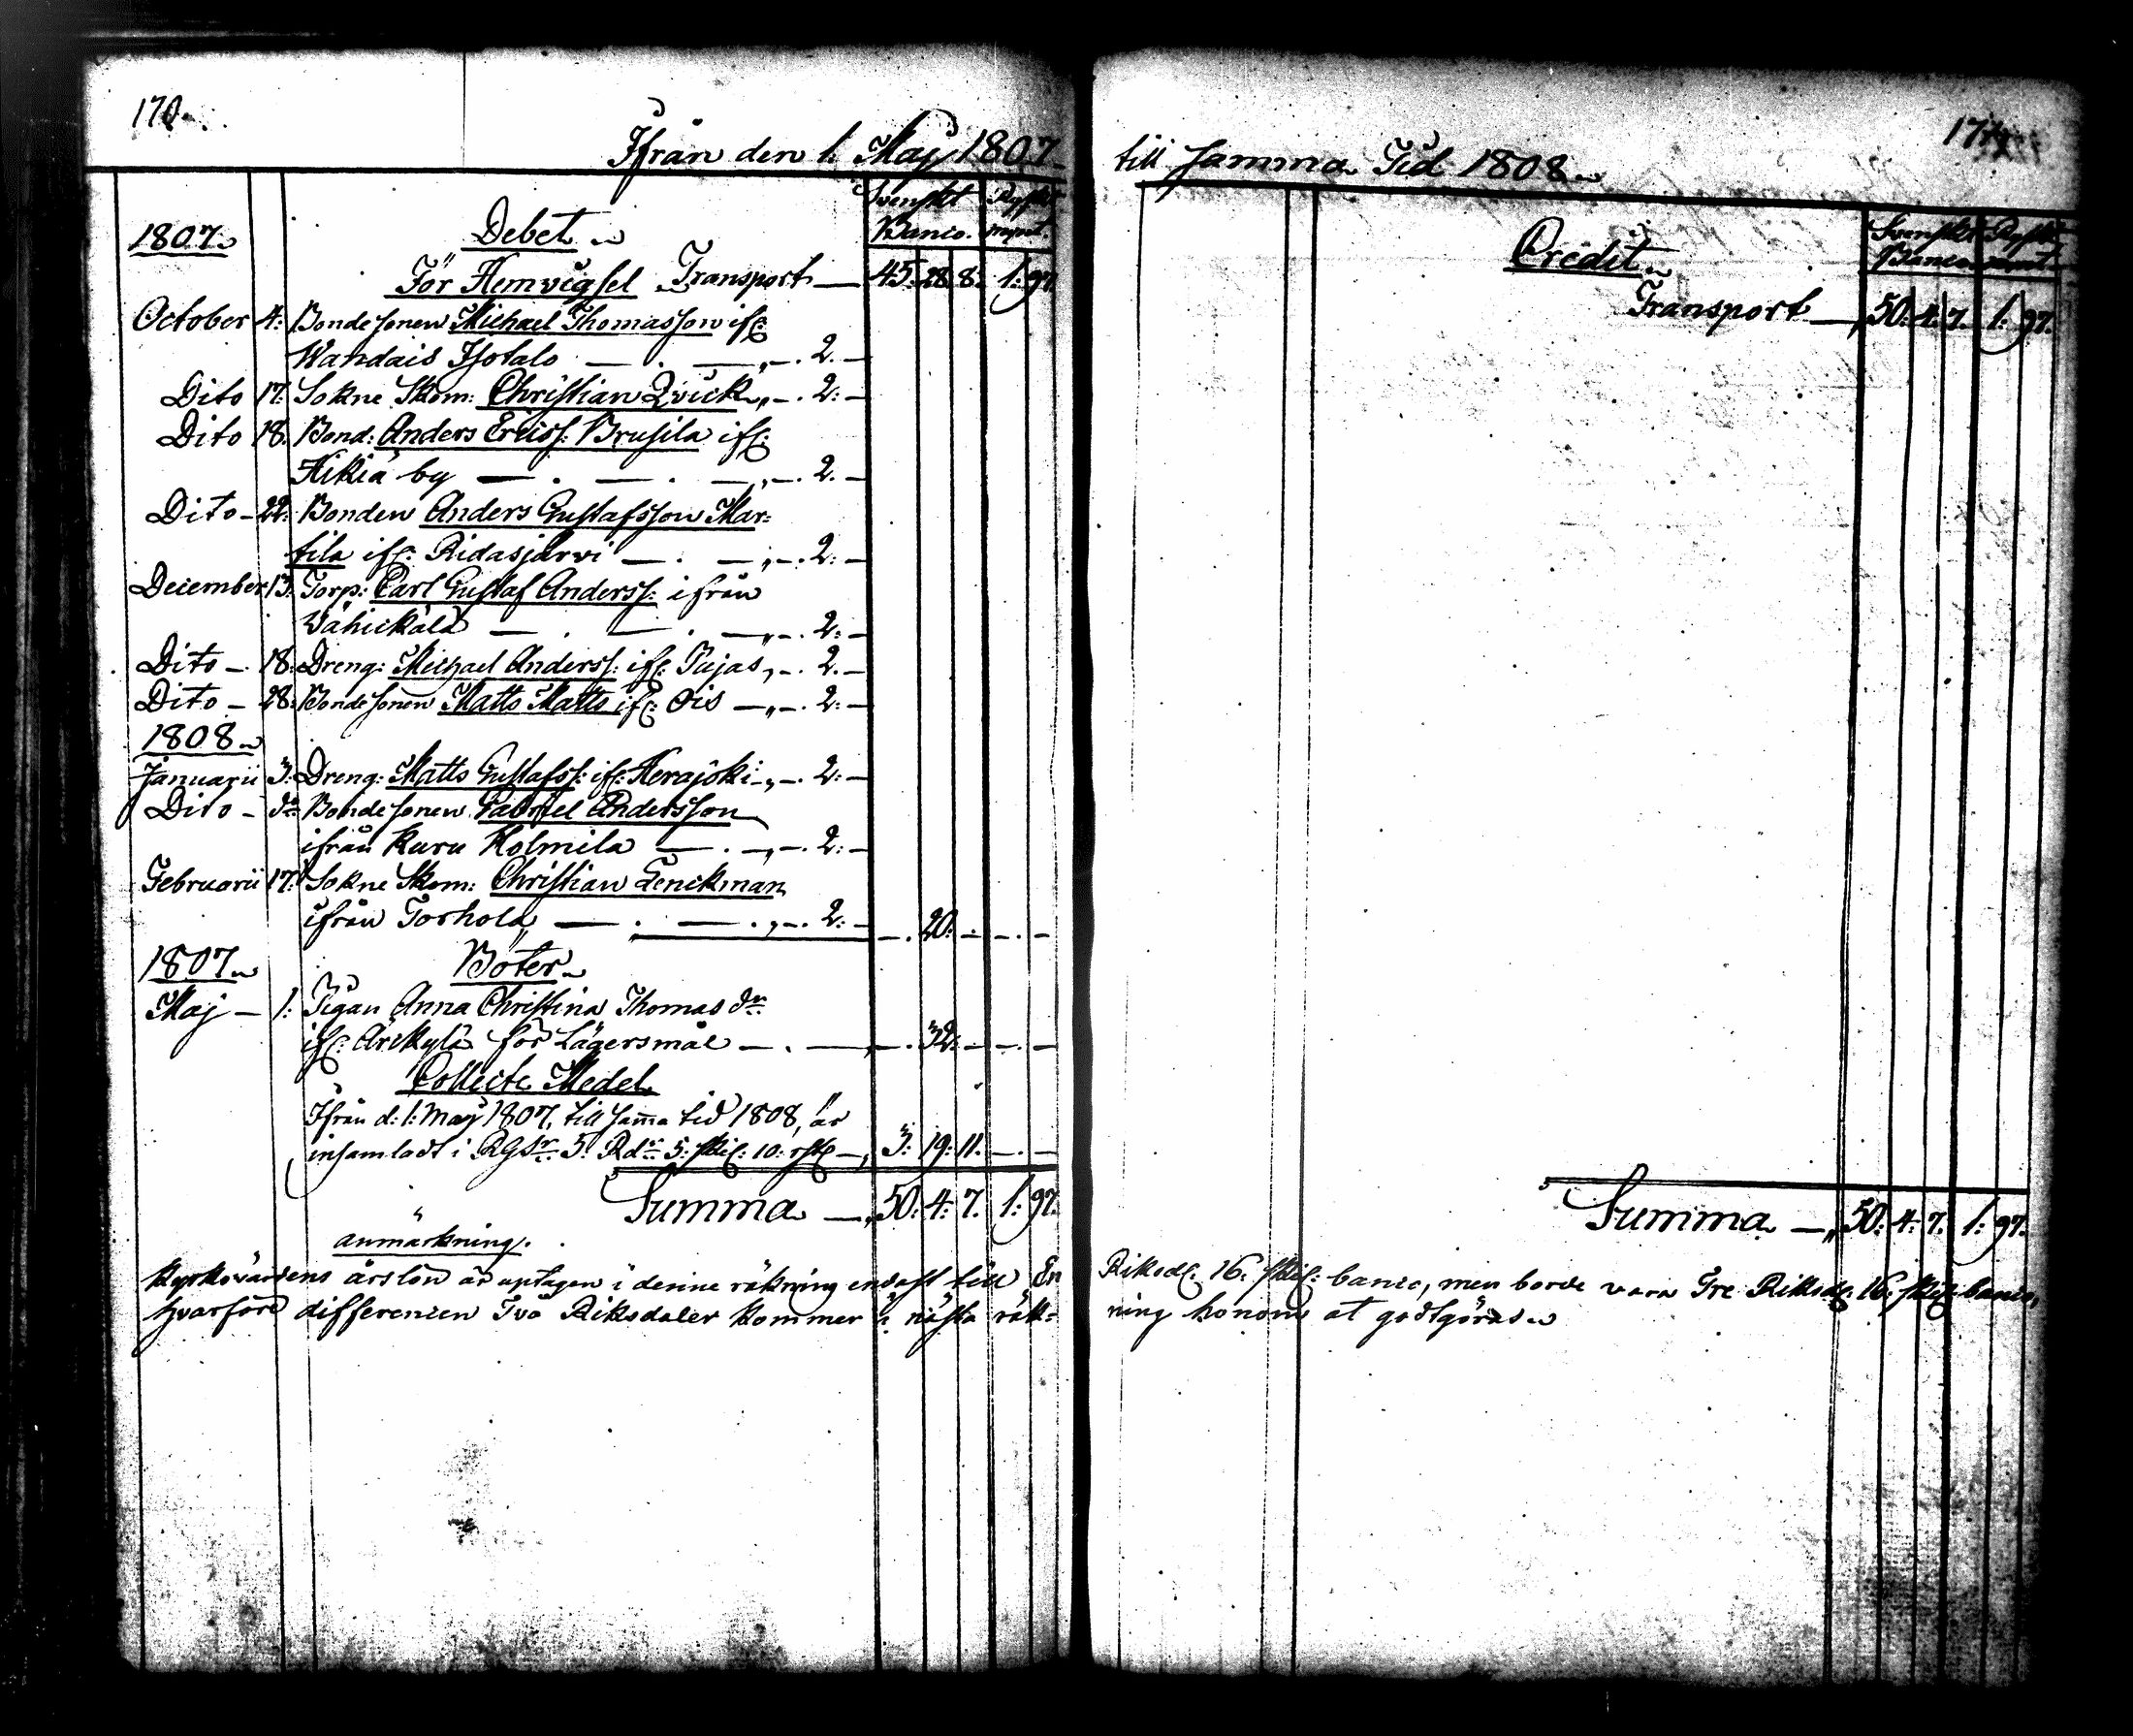 170.
Ifrån den 1. Maij 1807
Svenskt
1807
Debet
Banco.
För Hemvigsel Transport — 45: 28. 8: 1: 97.
October 4: Bondesonen Michael Thomasson ifr:
Wandais Isotalo — . — „ — . 2. —
Dito 17: Sokne Skom: Christian Qvick „ — . 2: —
Dito 18. Bond: Anders Ericss: Brusila ifr:
Hikiä by — . — . — „ — . 2. —
Dito — 22: Bonden Anders Gustafsson Mar=
tila ifr: Ridasjärvi — . — „ — . 2: —
December 13. Torp: Carl Gustaf Anderss: ifrån
Wähickälä — . — . — „ — . 2: —
Dito — 18: Dreng: Michael Anderss: ifr: Pujas „ — . 2. —
Dito — 28: Bondesonen Matts Matts ifr: Ois — „ — . 2: —
1808
Januarii 3: Dreng: Matts Gustafss: ifr: Kerajoki — „ — . 2: —
Dito — do Bondesonen Gabriel Andersson
ifrån Kuru Kolmila — . — „ — . 2: —
Februarii 17: Sokne Skom: Christian Lenckman
ifrån Torhola — . — . „ — . 2: — — . 20. — — . —
1807
Böter
Maj — 1: Pigan Anna Christina Thomas dr
ifr: Äickylä för Lägersmål — . — — . 32: — — . —
Collecte Medel
Ifrån d: 1: Maij 1807, till samma tid 1808, är
insamladt i RGSr. 5. Rdr 5: skil: 10: rst — 3: 19: 11. — . —
Summa — „ 50: 4: 7. 1: 97.
anmärkning.
Kyrkovärdens årslön är uptagen i denne räkning endast till En
hvarföre differencen Två Riksdaler kommer i nästa räk=
till samma Tid 1808
Credit
Svenskt
Banco
Transport — „ 50: 4: 7. 1: 97.
Summa — „ 50: 4: 7. 1: 97.
Riksd: 16: skil: banco, men borde vara Tre Riksd: 16: skil: banco,
ning honom at godtgöras